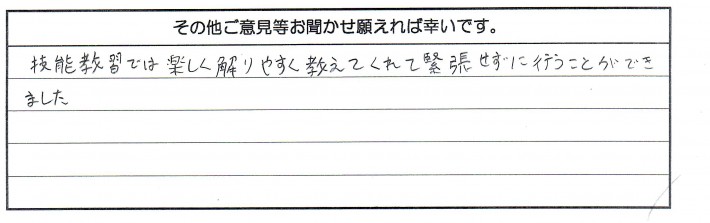 その他ご意見等お聞かせ願えれば幸いです。
技能教習では楽しく解りやすく教えてくれて緊張せずに行うことができ
ました